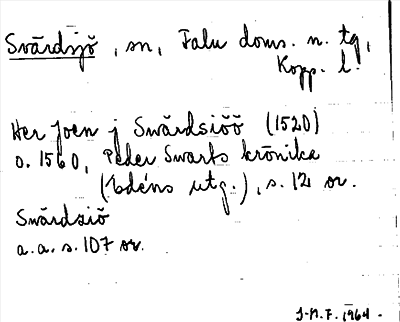 Svärdsjö, sn, Falu doms. n. tg,
Kopp. l.
Her Joen j Swärdsiöö (1520)
o. 1560, Peder Swarts krönika
(Edéns utg.), s. 12 or.
Swärdziö
a. a. s. 107 or.
J-N. F. 1964.